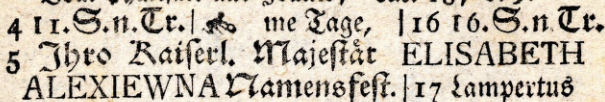 4 11. S. n. Tr. | me Tage, | 16 16. S. n. Tr.
5 Ihro Kaiserl. Majestät ELISABETH
ALEXIEWNA Namensfest. | 17 Lampertus